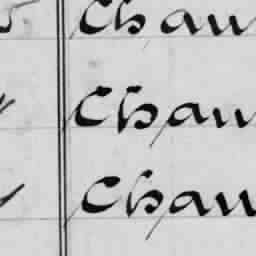 Chau
Chau
Chau